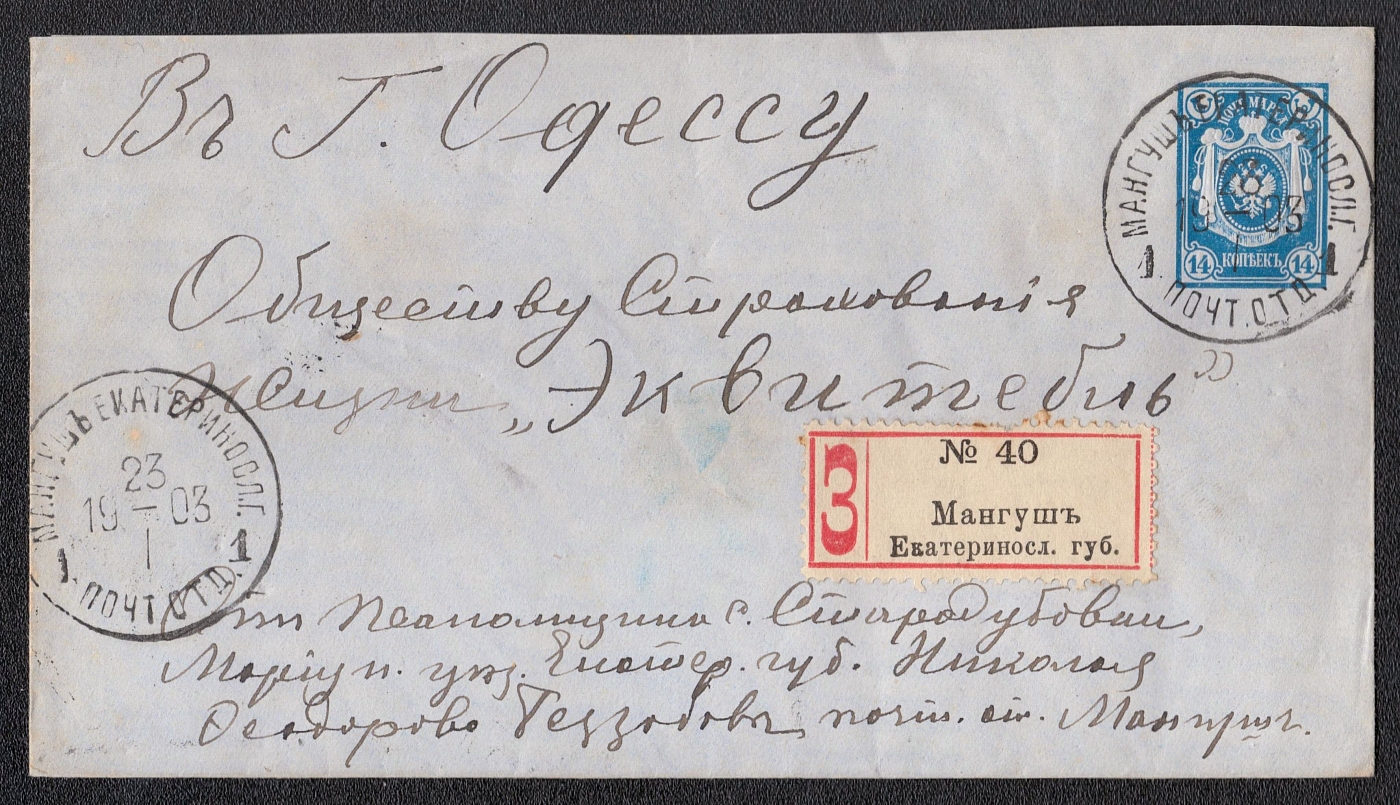 Въ Г. Одессу
14 ПОЧ. МАРКА 14
14 КОПѢЕКЪ 14
МАНГУШЪ ЕКАТЕРИНОСЛ.Г.
23
19 — 03
I
1 ПОЧТ.ОТД. 1
Обществу Страхованія
Жизни „Эквитебль"
МАНГУШЪ ЕКАТЕРИНОСЛ.Г.
23
19 — 03
I
1 ПОЧТ.ОТД. 1
З
№ 40
Мангушъ
Екатериносл. губ.
с. Стародубовки,
Маріуп. уѣз. Екатер. губ. Николая
Феодорово почт. ст. Мангушъ.